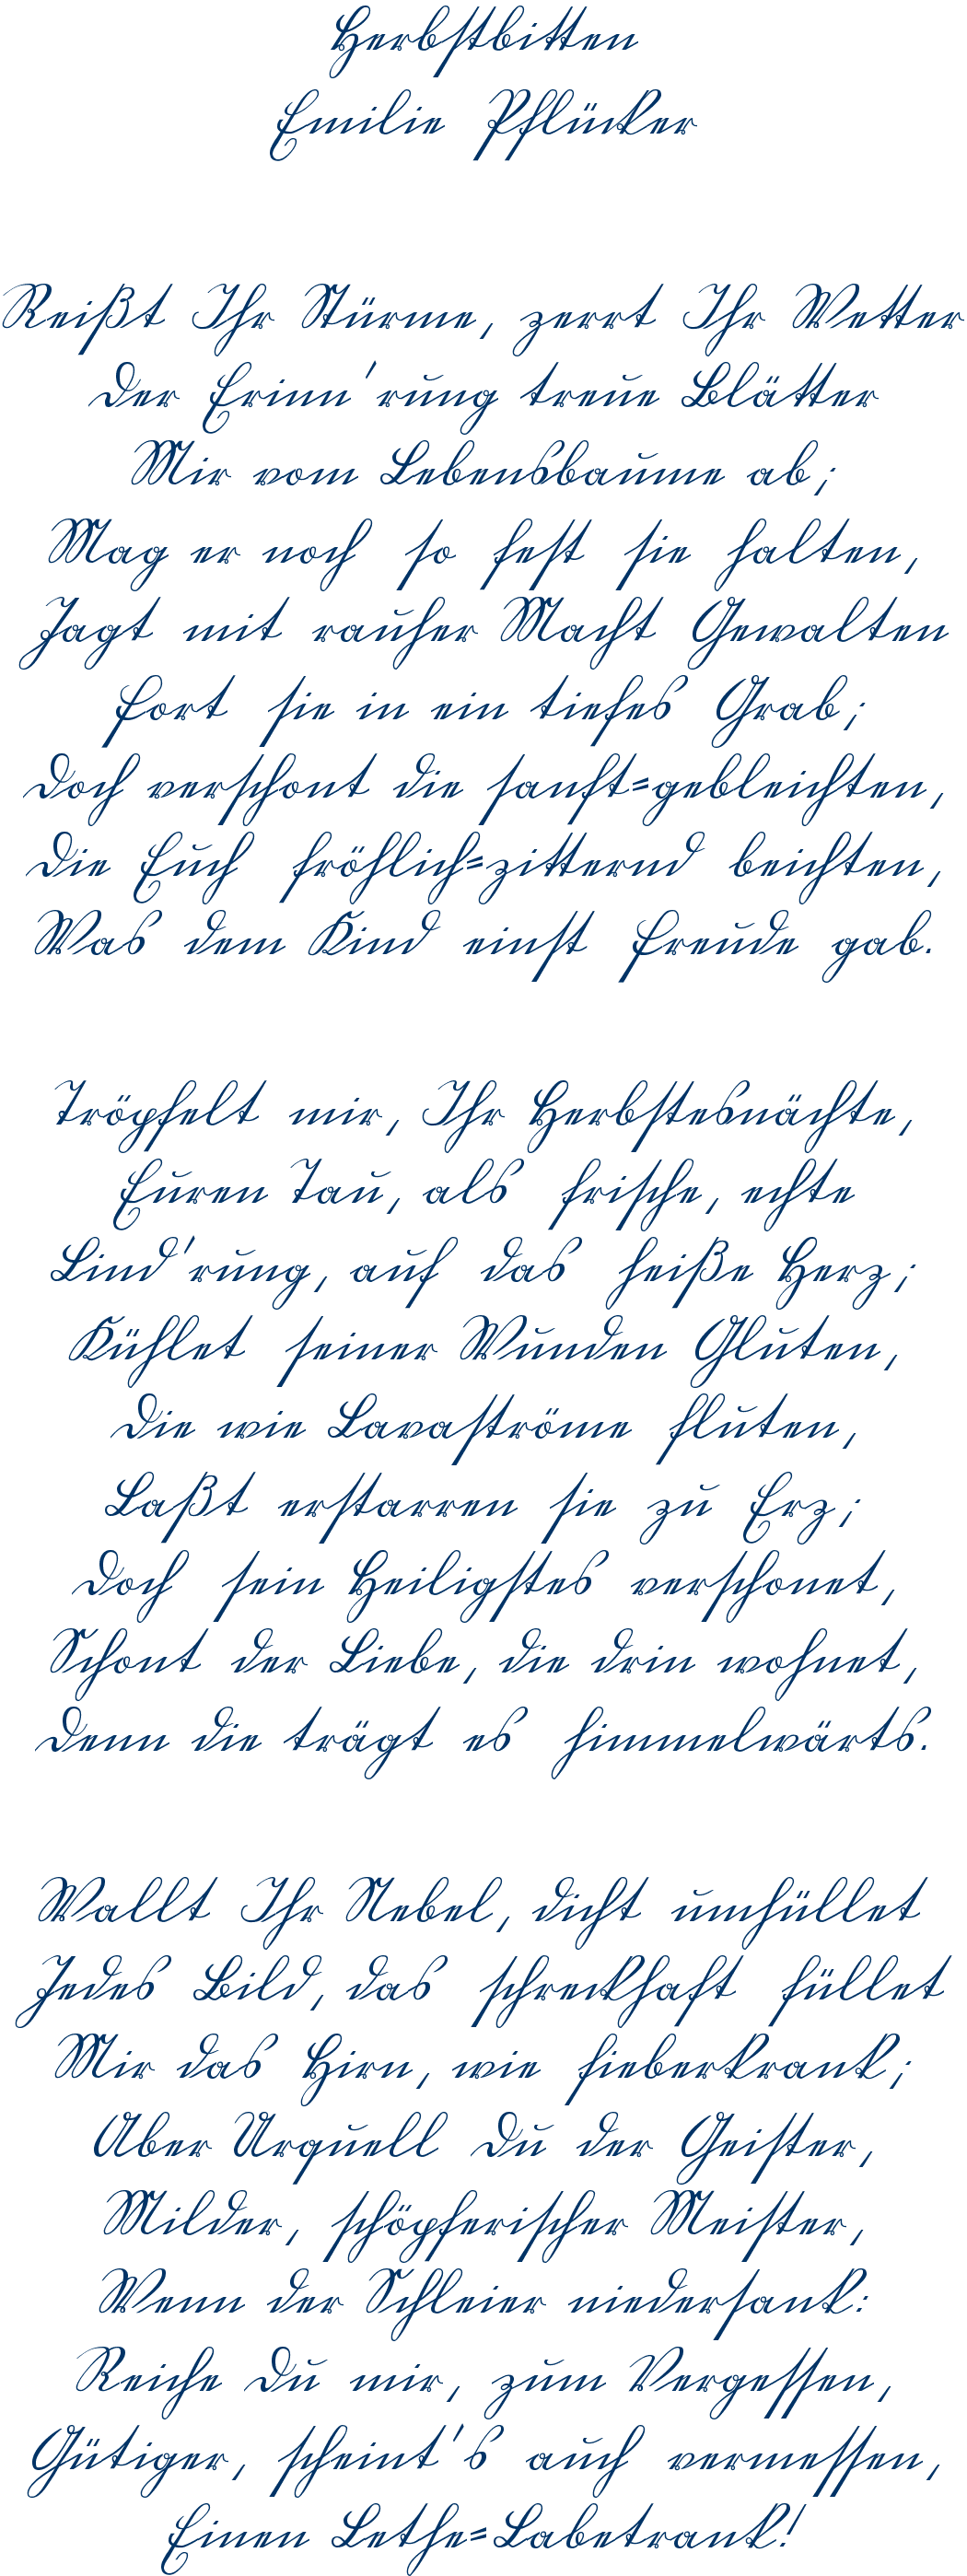 Herbstbitten
Emilie Pflücker
Reißt Ihr Stürme, zerrt Ihr Wetter
Der Erinn'rung treue Blätter
Mir vom Lebensbaume ab;
Mag er noch so fest sie halten,
Jagt mit rauher Macht Gewalten
Fort sie in ein tiefes Grab;
Doch verschont die sanft=gebleichten,
Die Euch fröhlich=zitternd beichten,
Was dem Kind einst Freude gab.
Tröpfelt mir, Ihr Herbstesnächte,
Euren Tau, als frische, echte
Lind'rung, auf das heiße Herz;
Kühlet seiner Wunden Gluten,
Die wie Lavaströme fluten,
Laßt erstarren sie zu Erz;
Doch sein Heiligstes verschonet,
Schont der Liebe, die drin wohnet,
Denn die trägt es himmelwärts.
Wallt Ihr Nebel, dicht umhüllet
Jedes Bild, das schreckhaft füllet
Mir das Hirn, wie fieberkrank;
Aber Urquell Du der Geister,
Milder, schöpferischer Meister,
Wenn der Schleier niedersank:
Reiche Du mir, zum Vergessen,
Gütiger, scheint's auch vermessen,
Einen Lethe=Labetrank!